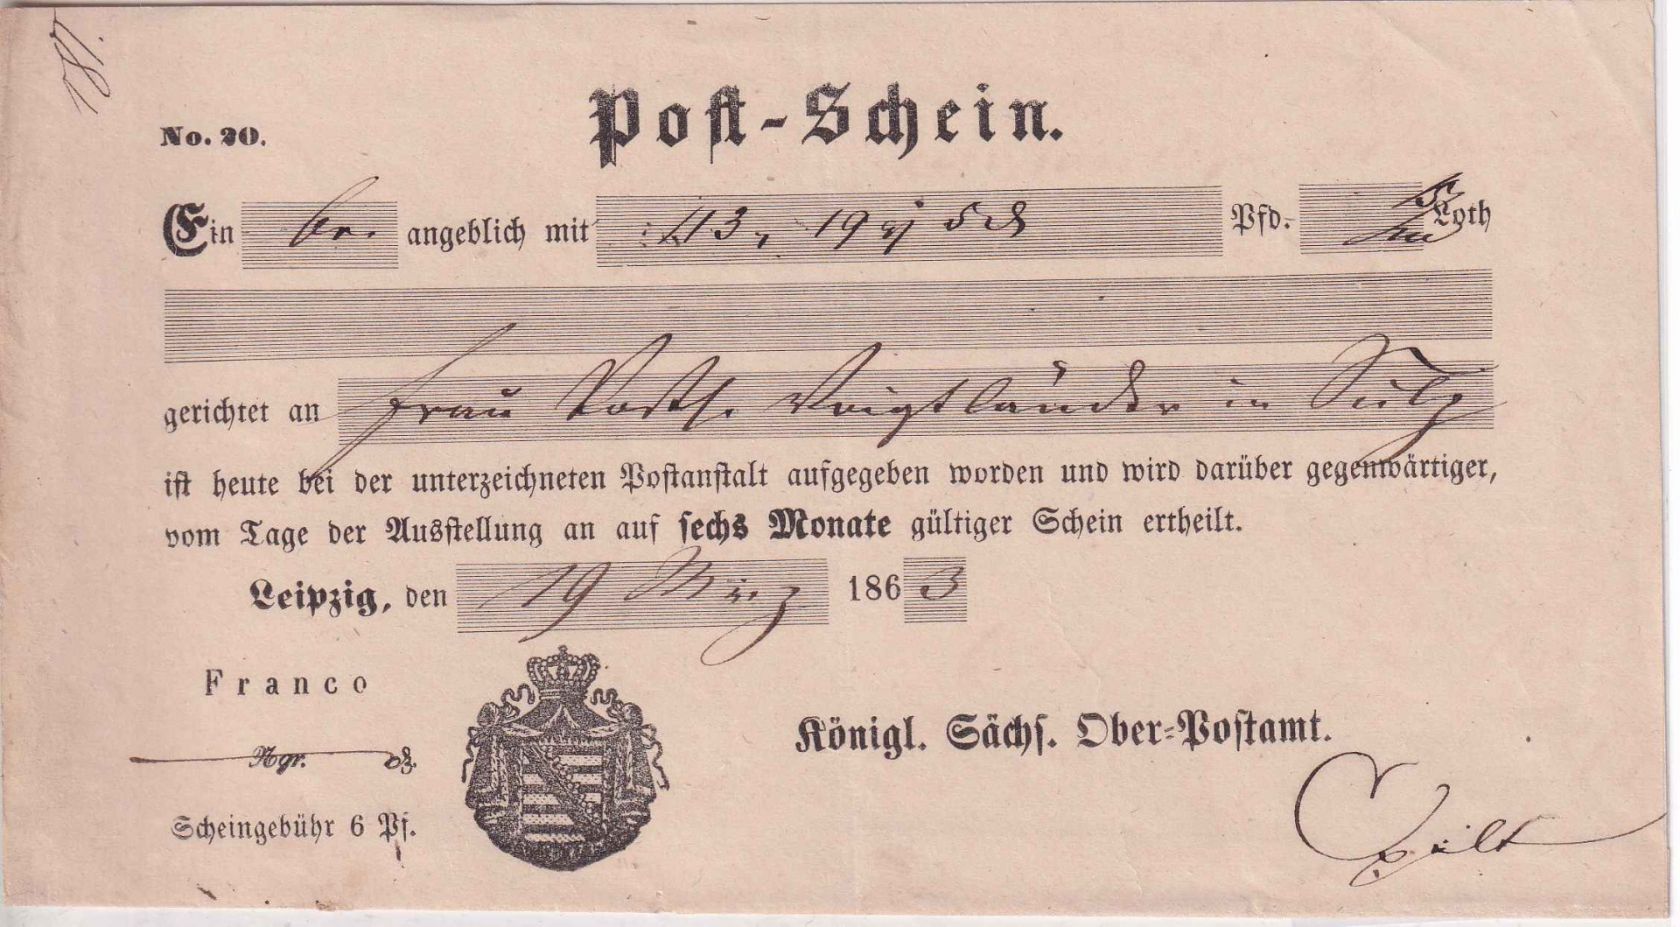 181.
No. 20.
Post-Schein.
Ein br. angeblich mit 43, 19 5 Pfd. 5 Loth
gerichtet an Frau Voigtländer in Sulz
ist heute bei der unterzeichneten Postanstalt aufgegeben worden und wird darüber gegenwärtiger,
vom Tage der Ausstellung an auf sechs Monate gültiger Schein ertheilt.
Leipzig, den 19 März 1863
Franco
Ngr. ₰.
Königl. Sächs. Ober-Postamt.
Scheingebühr 6 Pf.